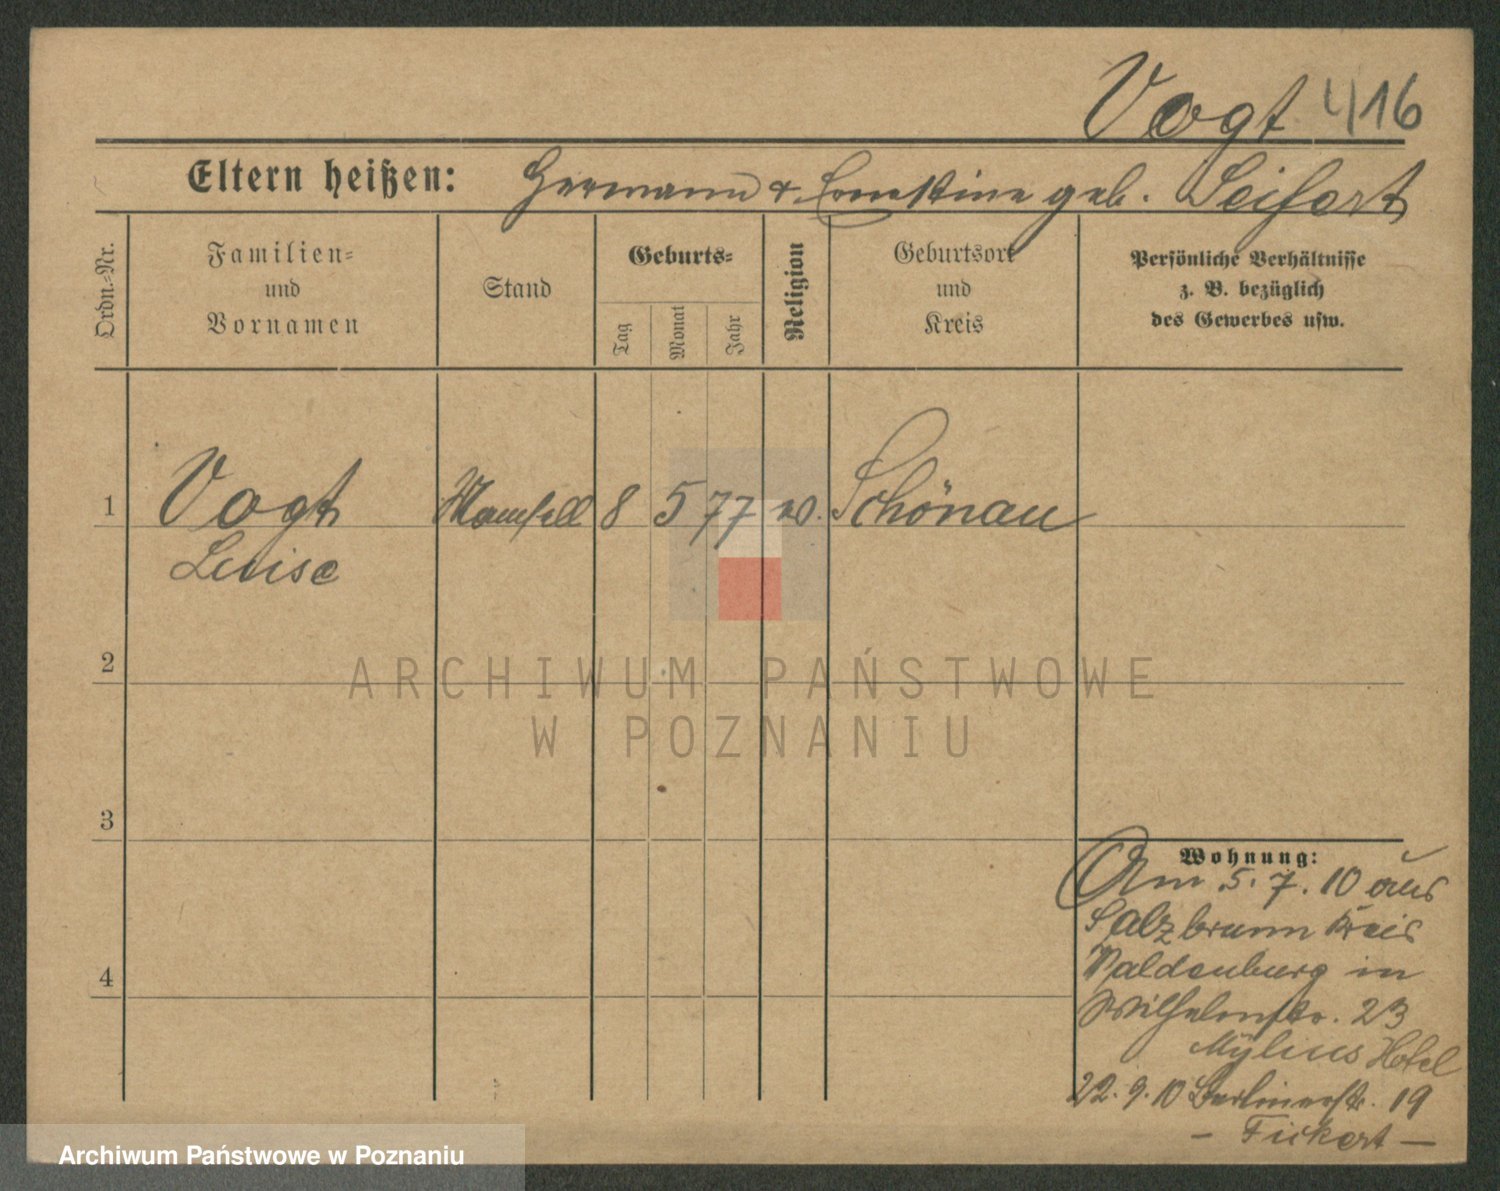 Vogt 416
Eltern heißen: Hermann & Ernestine geb. Seifert
Ordn.-Nr.
Familien-
und
Vornamen
Stand
Geburts-
Tag
Monat
Jahr
Religion
Geburtsort
und
Kreis
Persönliche Verhältnisse
z. B. bezüglich
des Gewerbes usw.
1 Vogt Mamsell 8 5 77 ev. Schönau
Luise
2
3
4
Wohnung:
Am 5. 7. 10 aus
Salzbrunn Kreis
Waldenburg in
Wilhelmstr. 23
Mylius Hotel
22. 9. 10 Berlinerstr. 19
– Fickert –
ARCHIWUM PAŃSTWOWE
W POZNANIU
Archiwum Państwowe w Poznaniu